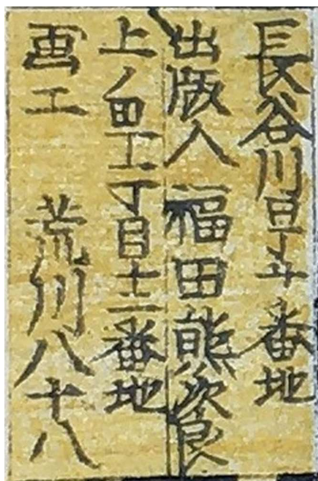 長谷川 番地
出版人 福田熊次良
上ノ 丁目十二番地
画工 荒川八十八